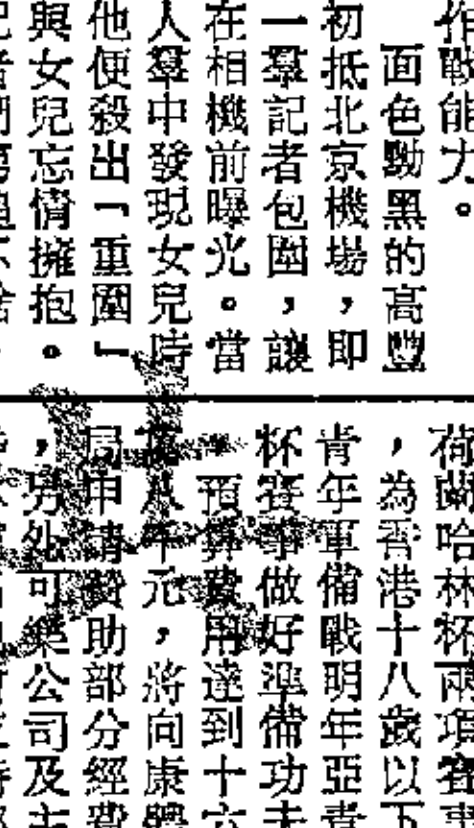 作戰能力。
面色黝黑的高豐
初抵北京機場，即
一羣記者包圍，讓
在相機前曝光。當
人羣中發現女兒時
他便殺出「重圍」
與女兒忘情擁抱。
荷蘭哈林杯兩項賽事
，為香港十八歲以下
青年軍備戰明年亞青
杯賽事做好準備功夫
預算費用達到十六
萬八千元，將向康體
局申請贊助部分經費
，另外可樂公司及主